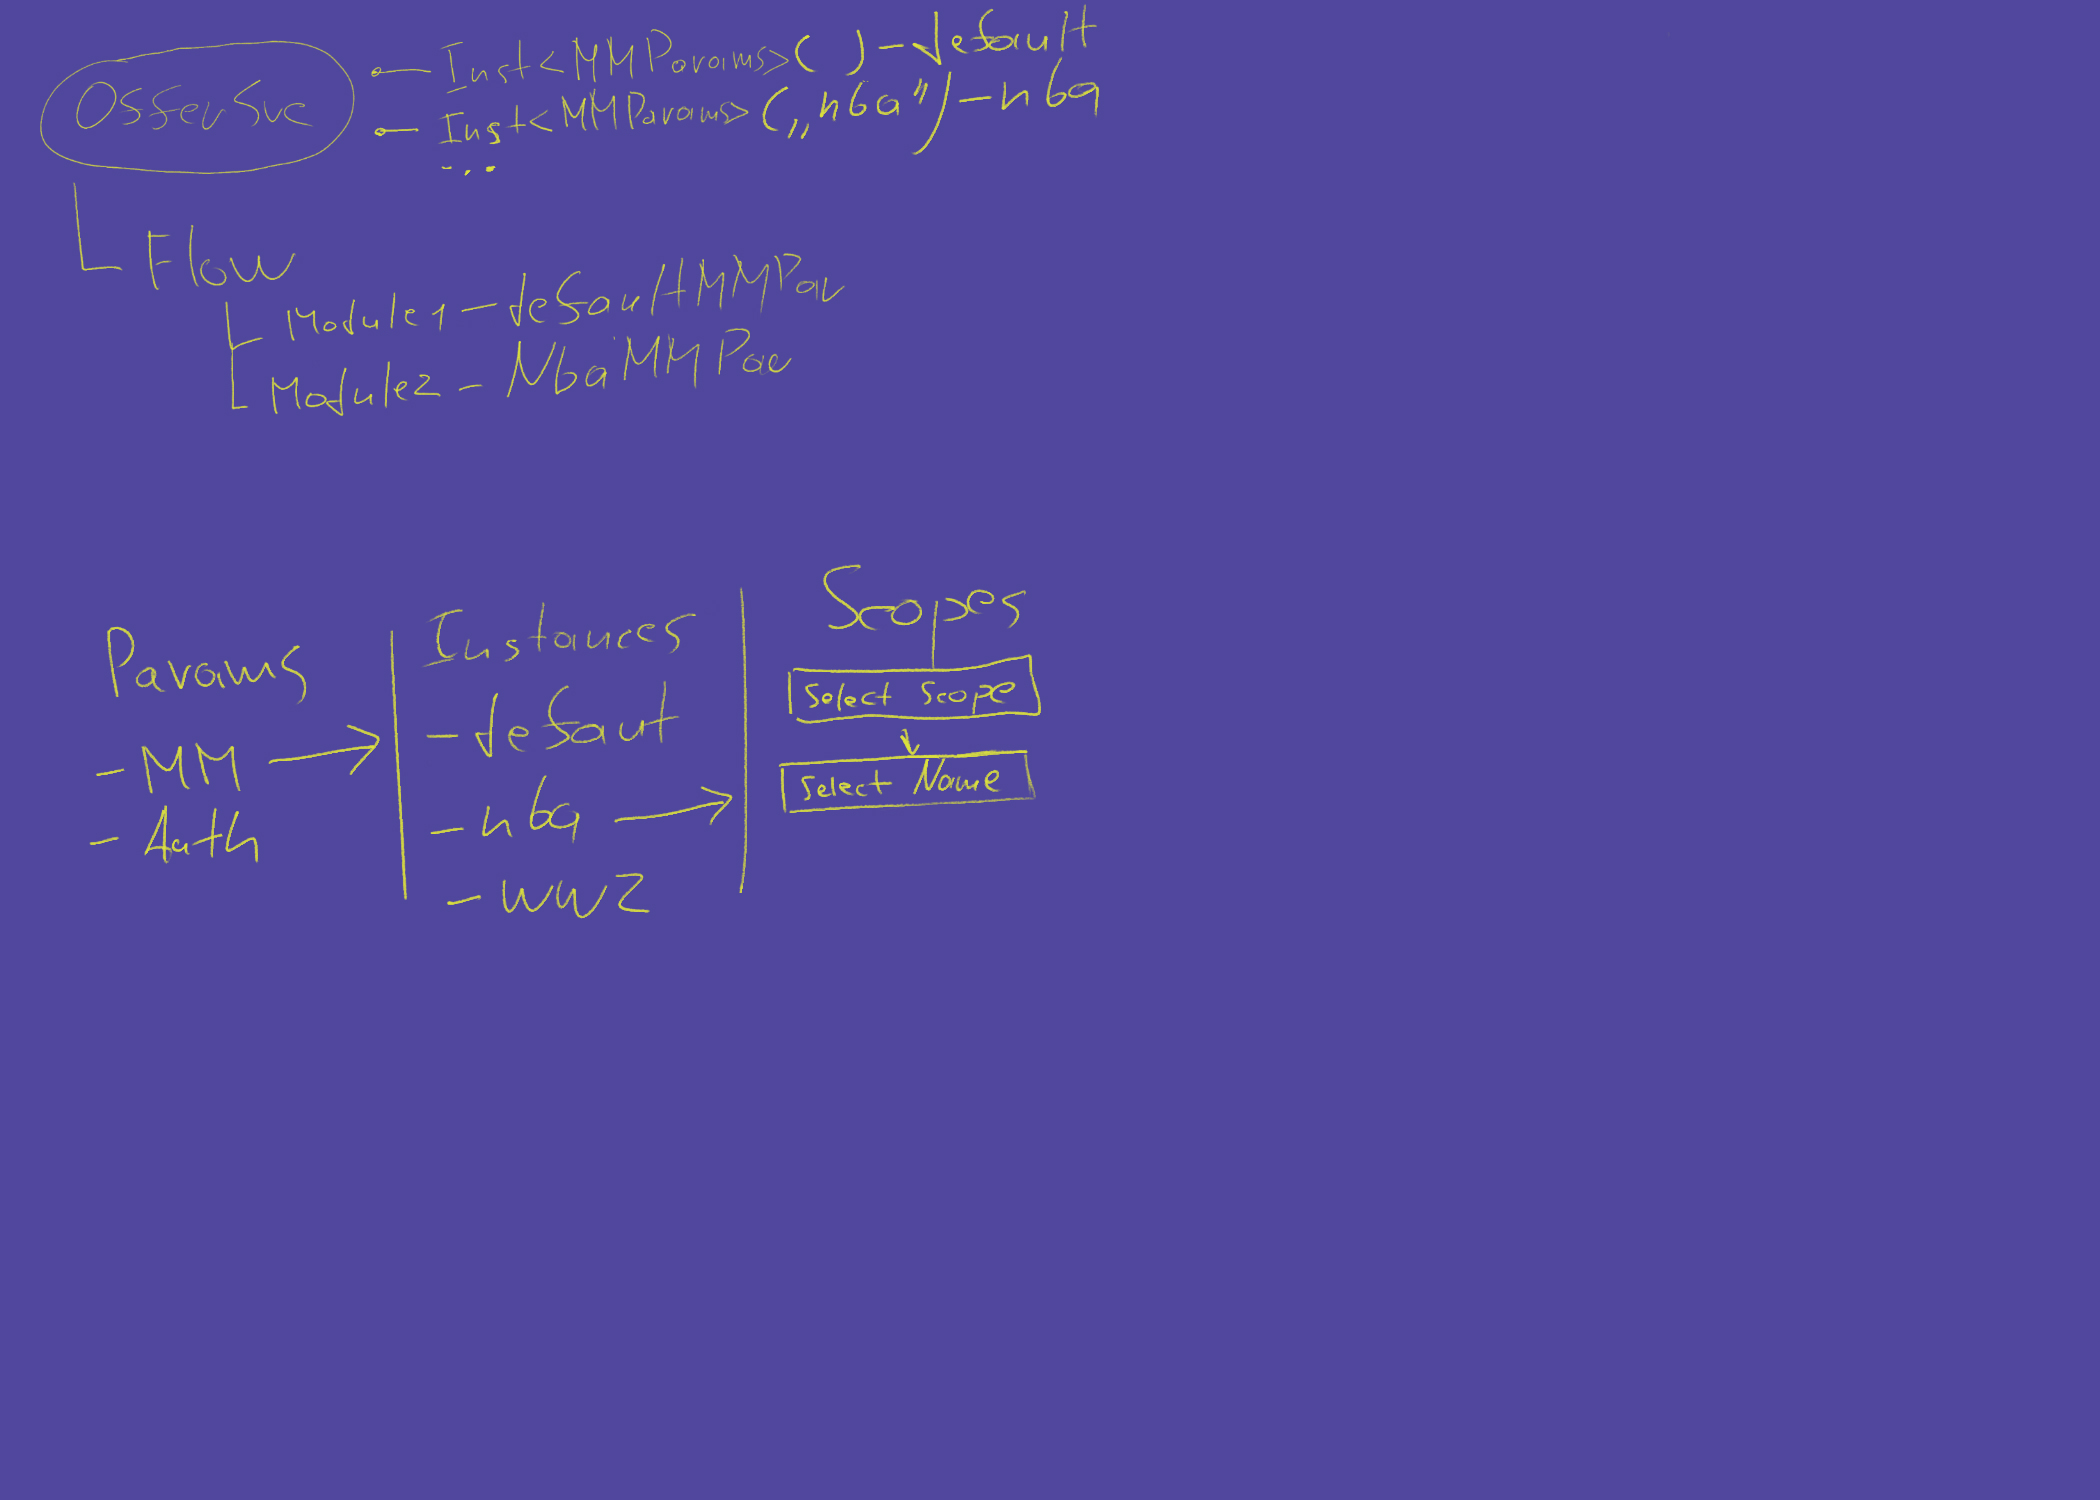 OfferSvc
Inst<MMParams>( ) - default
Inst<MMParams>(„nba") - nba
...
Flow
Module1 - defaultMMPar
Module2 - NbaMMPar
Params
- MM
- Auth
Instances
- defaut
- nba
- ww2
Scopes
Select Scope
Select Name